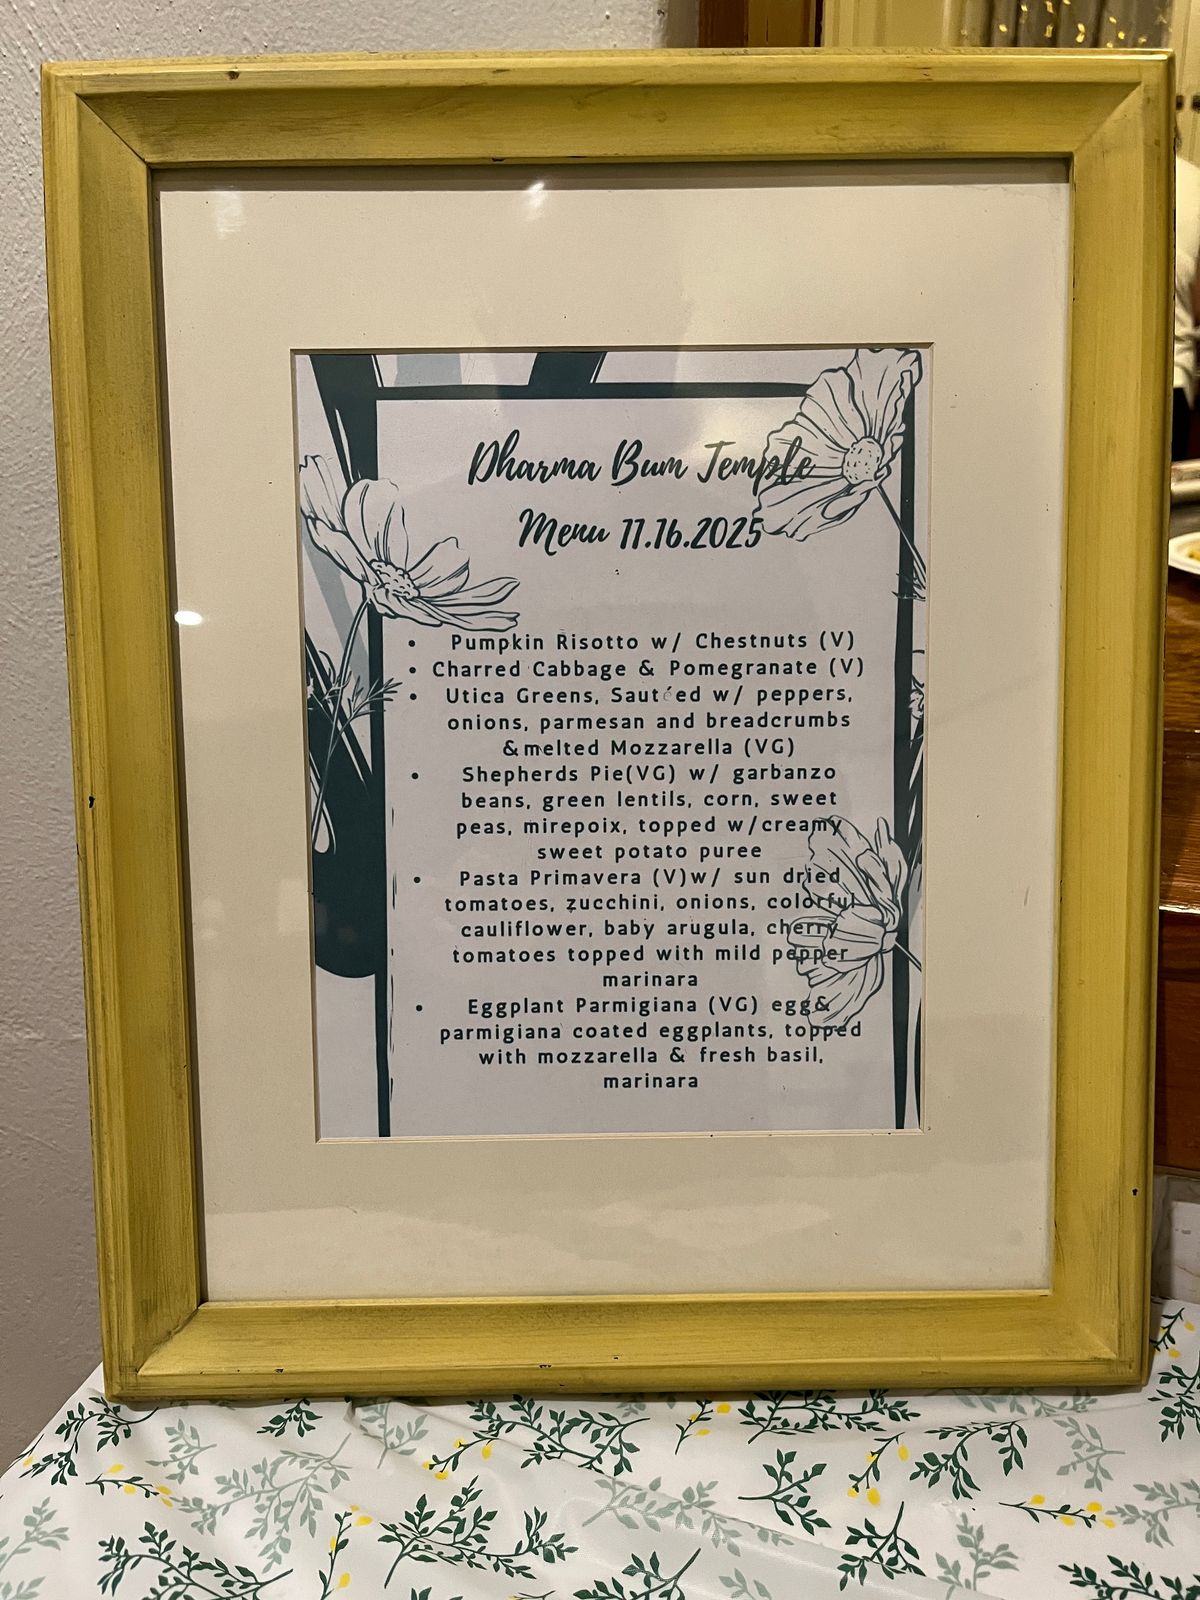 Dharma Bum Temple
Menu 11.16.2025
• Pumpkin Risotto w/ Chestnuts (V)
• Charred Cabbage & Pomegranate (V)
• Utica Greens, Sautéed w/ peppers,
onions, parmesan and breadcrumbs
&melted Mozzarella (VG)
• Shepherds Pie(VG) w/ garbanzo
beans, green lentils, corn, sweet
peas, mirepoix, topped w/creamy
sweet potato puree
• Pasta Primavera (V)w/ sun dried
tomatoes, zucchini, onions, colorful
cauliflower, baby arugula, cherry
tomatoes topped with mild pepper
marinara
• Eggplant Parmigiana (VG) egg&
parmigiana coated eggplants, topped
with mozzarella & fresh basil,
marinara